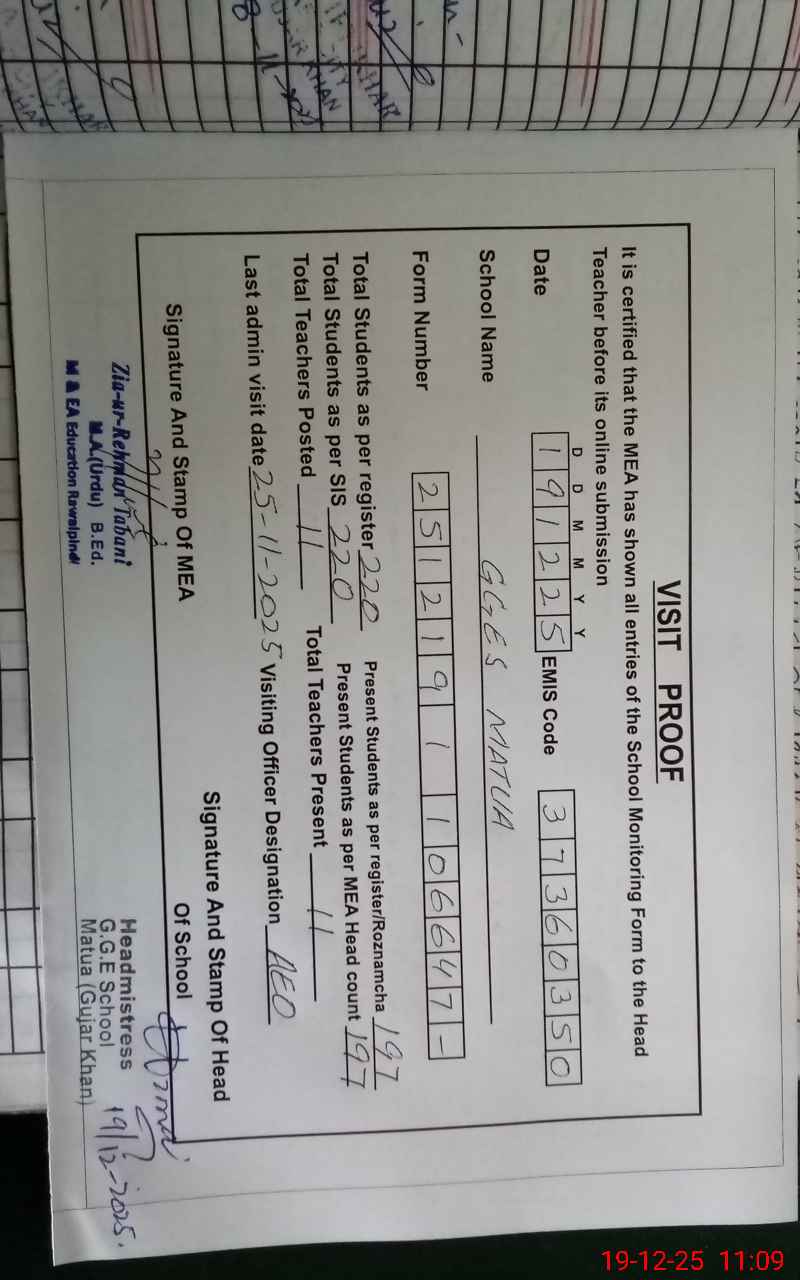 VISIT PROOF
It is certified that the MEA has shown all entries of the School Monitoring Form to the Head
Teacher before its online submission
D D M M Y Y
Date 1 9 1 2 2 5 EMIS Code 3 7 3 6 0 3 5 0
School Name GGES MATUA
Form Number 2 5 1 2 1 9 1 1 0 6 6 4 7 -
Total Students as per register 220 Present Students as per register/Roznamcha 197
Total Students as per SIS 220 Present Students as per MEA Head count 197
Total Teachers Posted 11 Total Teachers Present 11
Last admin visit date 25-11-2025 Visiting Officer Designation AEO
Signature And Stamp Of MEA
Zia-ur-Rehman Tabani
M.A.(Urdu) B.Ed.
M & EA Education Rawalpindi
Signature And Stamp Of Head
Of School
Headmistress
G.G.E School
Matua (Gujar Khan)
19/12-2025.
KHAN
19-12-25 11:09